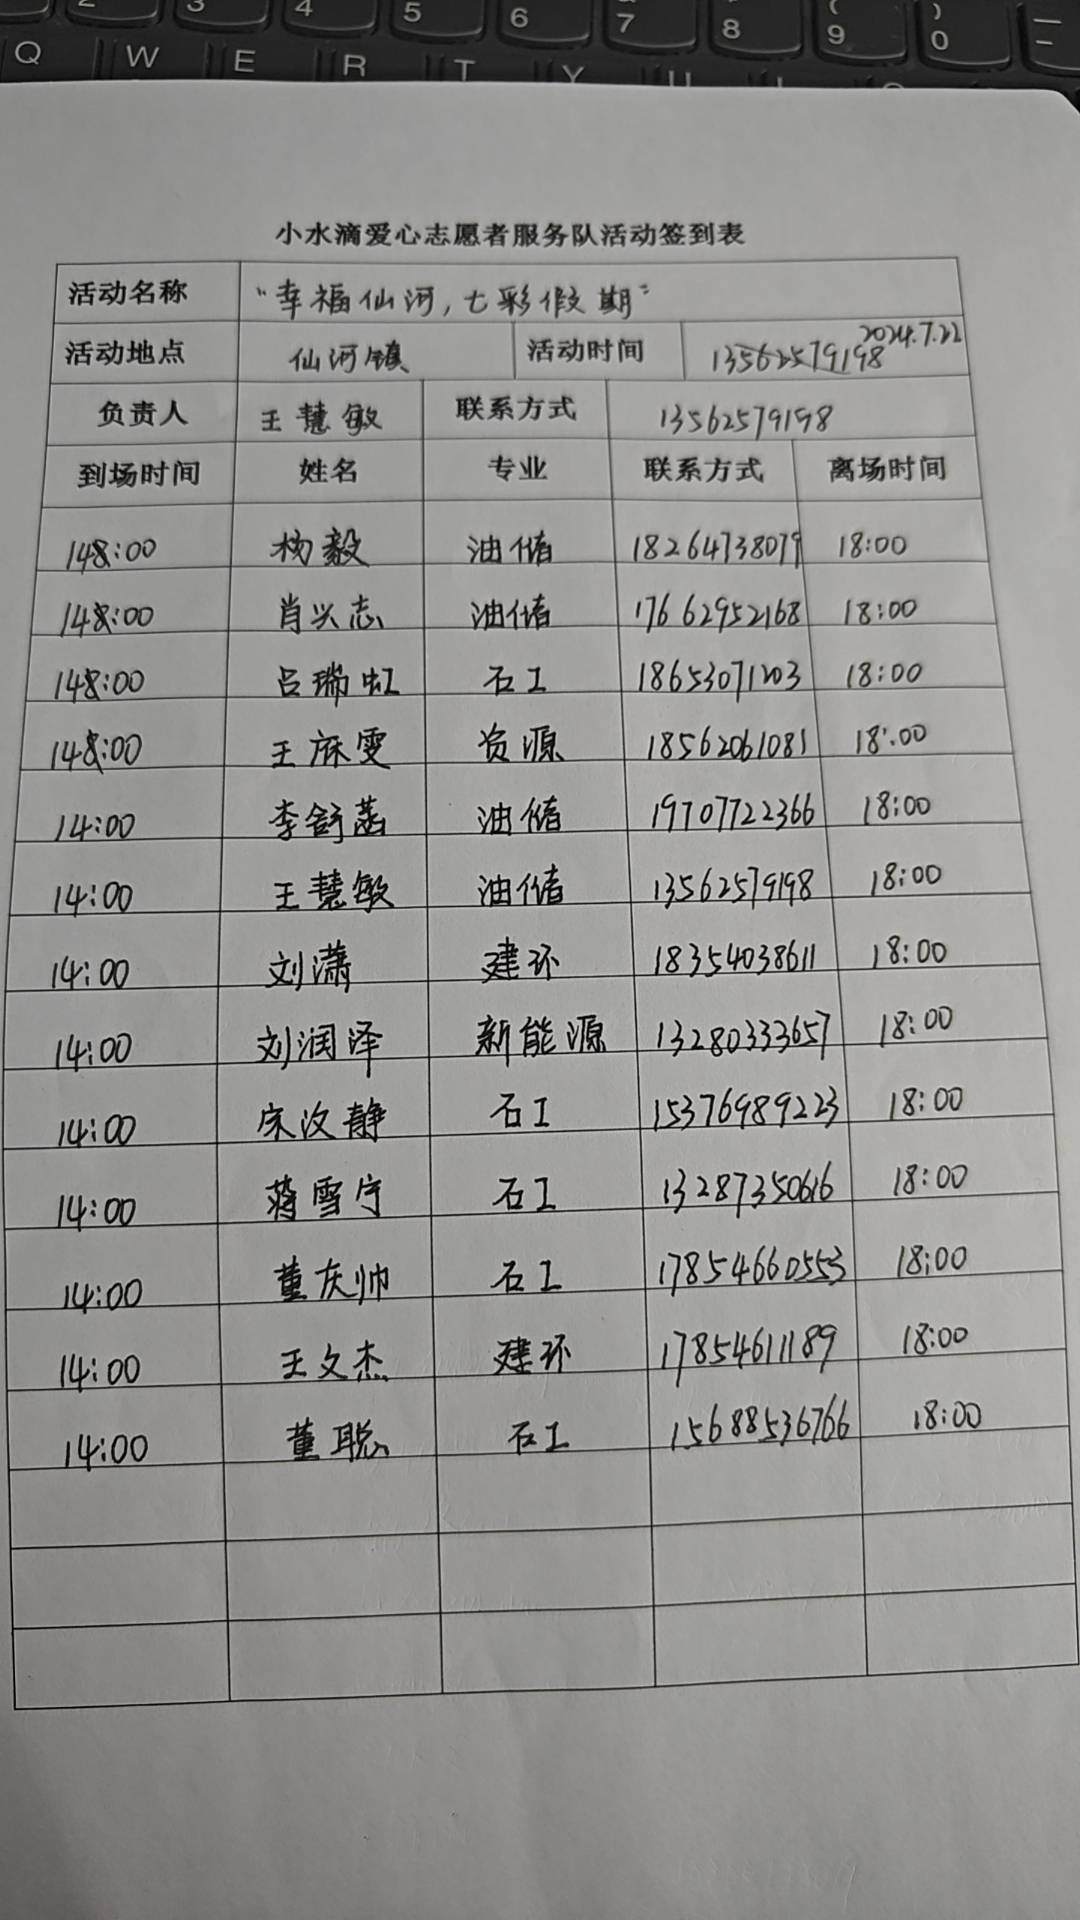 Q W E R T Y U
4 5 6 7 8 9 0
小水滴爱心志愿者服务队活动签到表
活动名称 “幸福仙河,七彩假期”
活动地点 仙河镇 活动时间 13562579198 2024.7.22
负责人 王慧敏 联系方式 13562579198
到场时间 姓名 专业 联系方式 离场时间
14:00 杨毅 油储 18264738079 18:00
14:00 肖兴志 油储 17662952168 18:00
14:00 吕瑞虹 石工 18653071203 18:00
14:00 王麻雯 资源 18562061081 18:00
14:00 李舒菡 油储 19707722366 18:00
14:00 王慧敏 油储 13562579198 18:00
14:00 刘潇 建环 18354038611 18:00
14:00 刘润泽 新能源 13280333657 18:00
14:00 宋汶静 石工 15376989223 18:00
14:00 蒋雪宁 石工 13287350616 18:00
14:00 董庆帅 石工 17854660553 18:00
14:00 王文杰 建环 17854611189 18:00
14:00 董聪 石工 15688536766 18:00